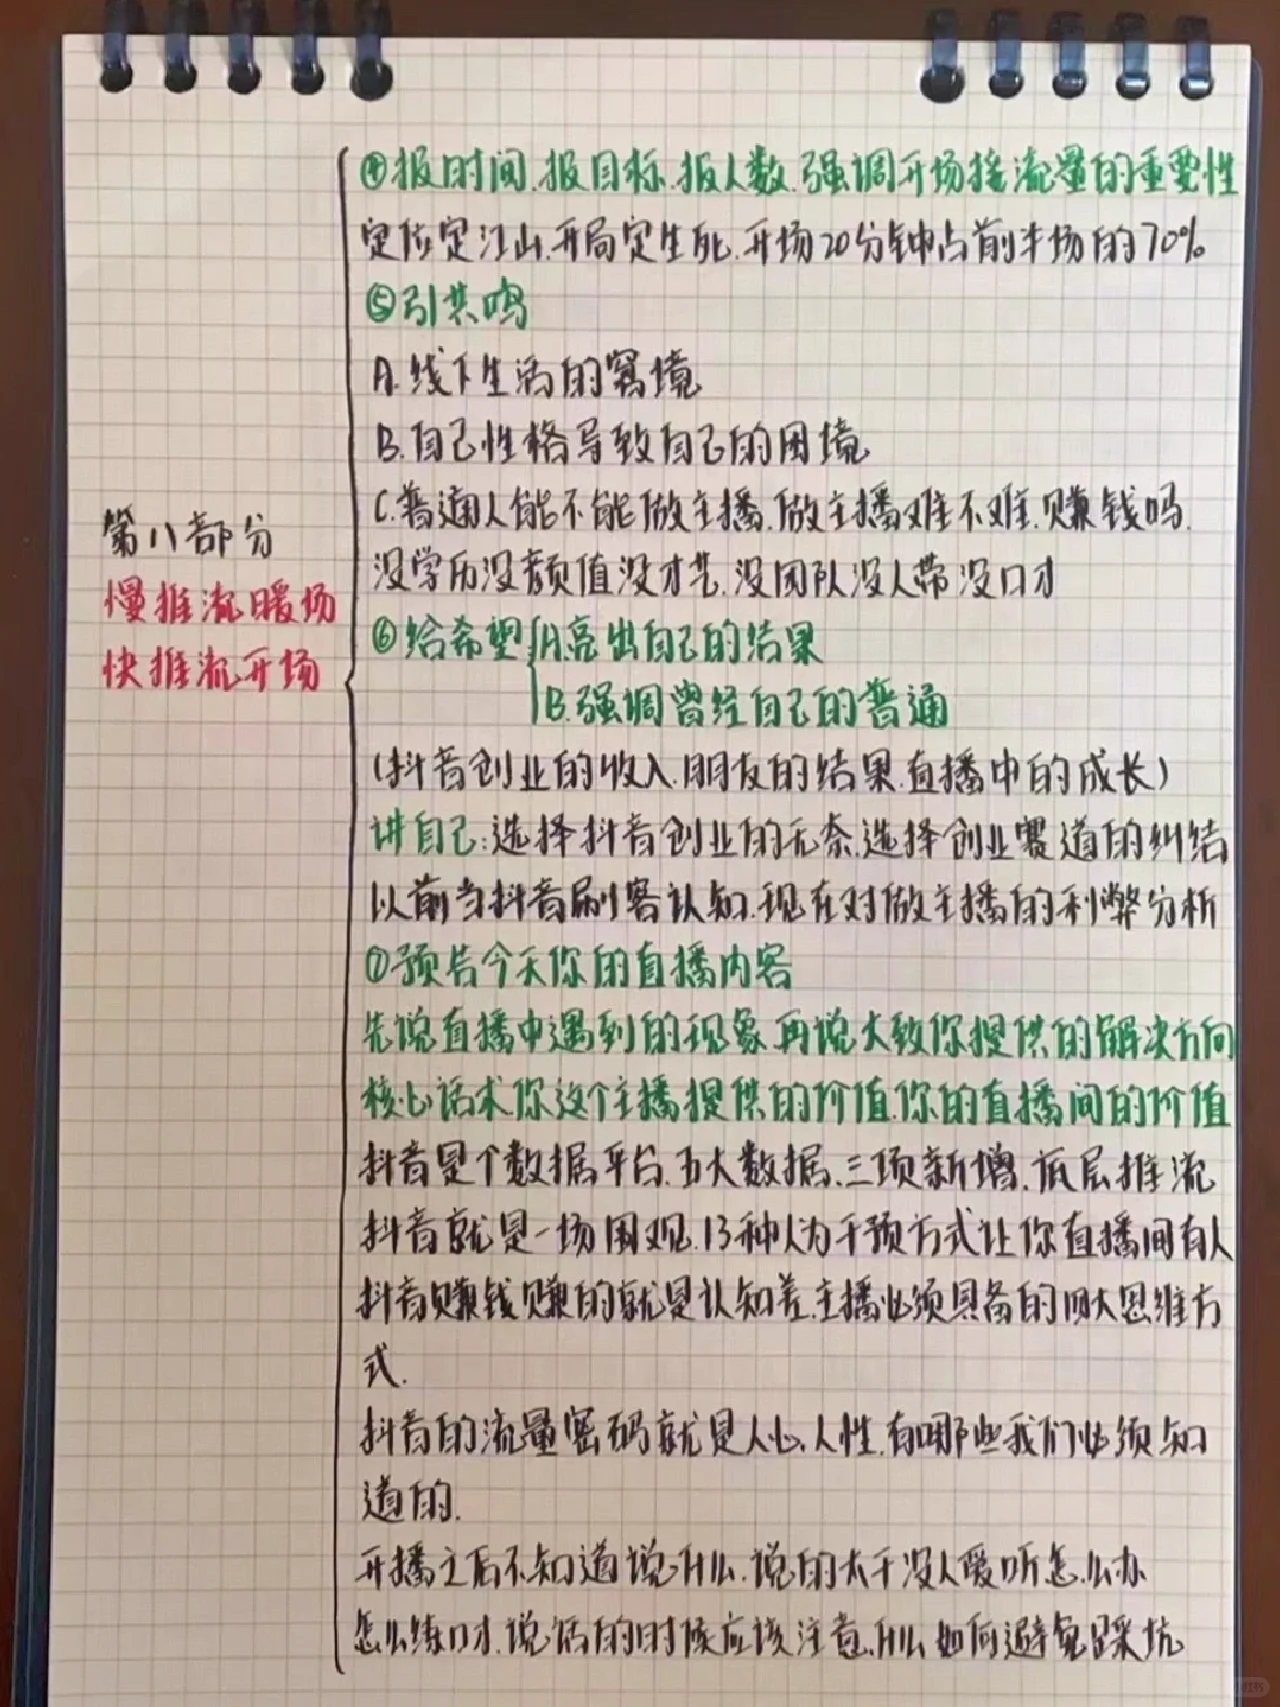 ④报时间.报目标.报人数.强调开场接流量的重要性
定位定江山.开局定生死.开场20分钟占前半场的70%
⑤引共鸣
A.线下生活的窘境
B.自己性格导致自己的困境
C.普通人能不能做主播.做主播难不难.赚钱吗.
没学历没颜值没才艺.没团队没人带没口才
第八部分
慢推流暖场
快推流开场
⑥给希望 A.亮出自己的结果
B.强调曾经自己的普通
(抖音创业的收入.朋友的结果.直播中的成长)
讲自己:选择抖音创业的无奈.选择创业赛道的纠结
以前当抖音刷客认知.现在对做主播的利弊分析
⑦预告今天你的直播内容
先说直播中遇到的现象.再说大致你提供的解决方向
核心话术你这个主播提供的价值.你的直播间的价值
抖音是个数据平台.五大数据.三项新增.底层推流
抖音就是一场围观.13种人为干预方式让你直播间有人
抖音赚钱赚的就是认知差.主播必须具备的四大思维方
式.
抖音的流量密码就是人心.人性.有哪些我们必须知
道的.
开播之后不知道说什么.说的太干没人爱听怎么办
怎么练口才.说话的时候应该注意什么.如何避免踩坑